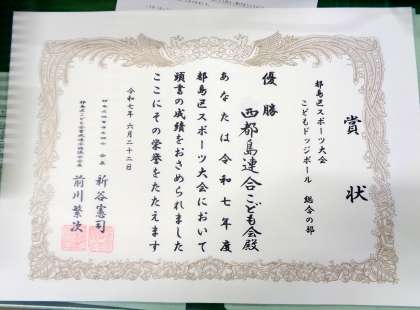 賞状
都島区スポーツ大会
こどもドッジボール 総合の部
優勝
西都島連合こども会殿
あなたは令和七年度
都島区スポーツ大会において
頭書の成績をおさめられました
ここにその栄誉をたたえます
令和七年六月二十二日
会長 新谷憲司
前川繁次